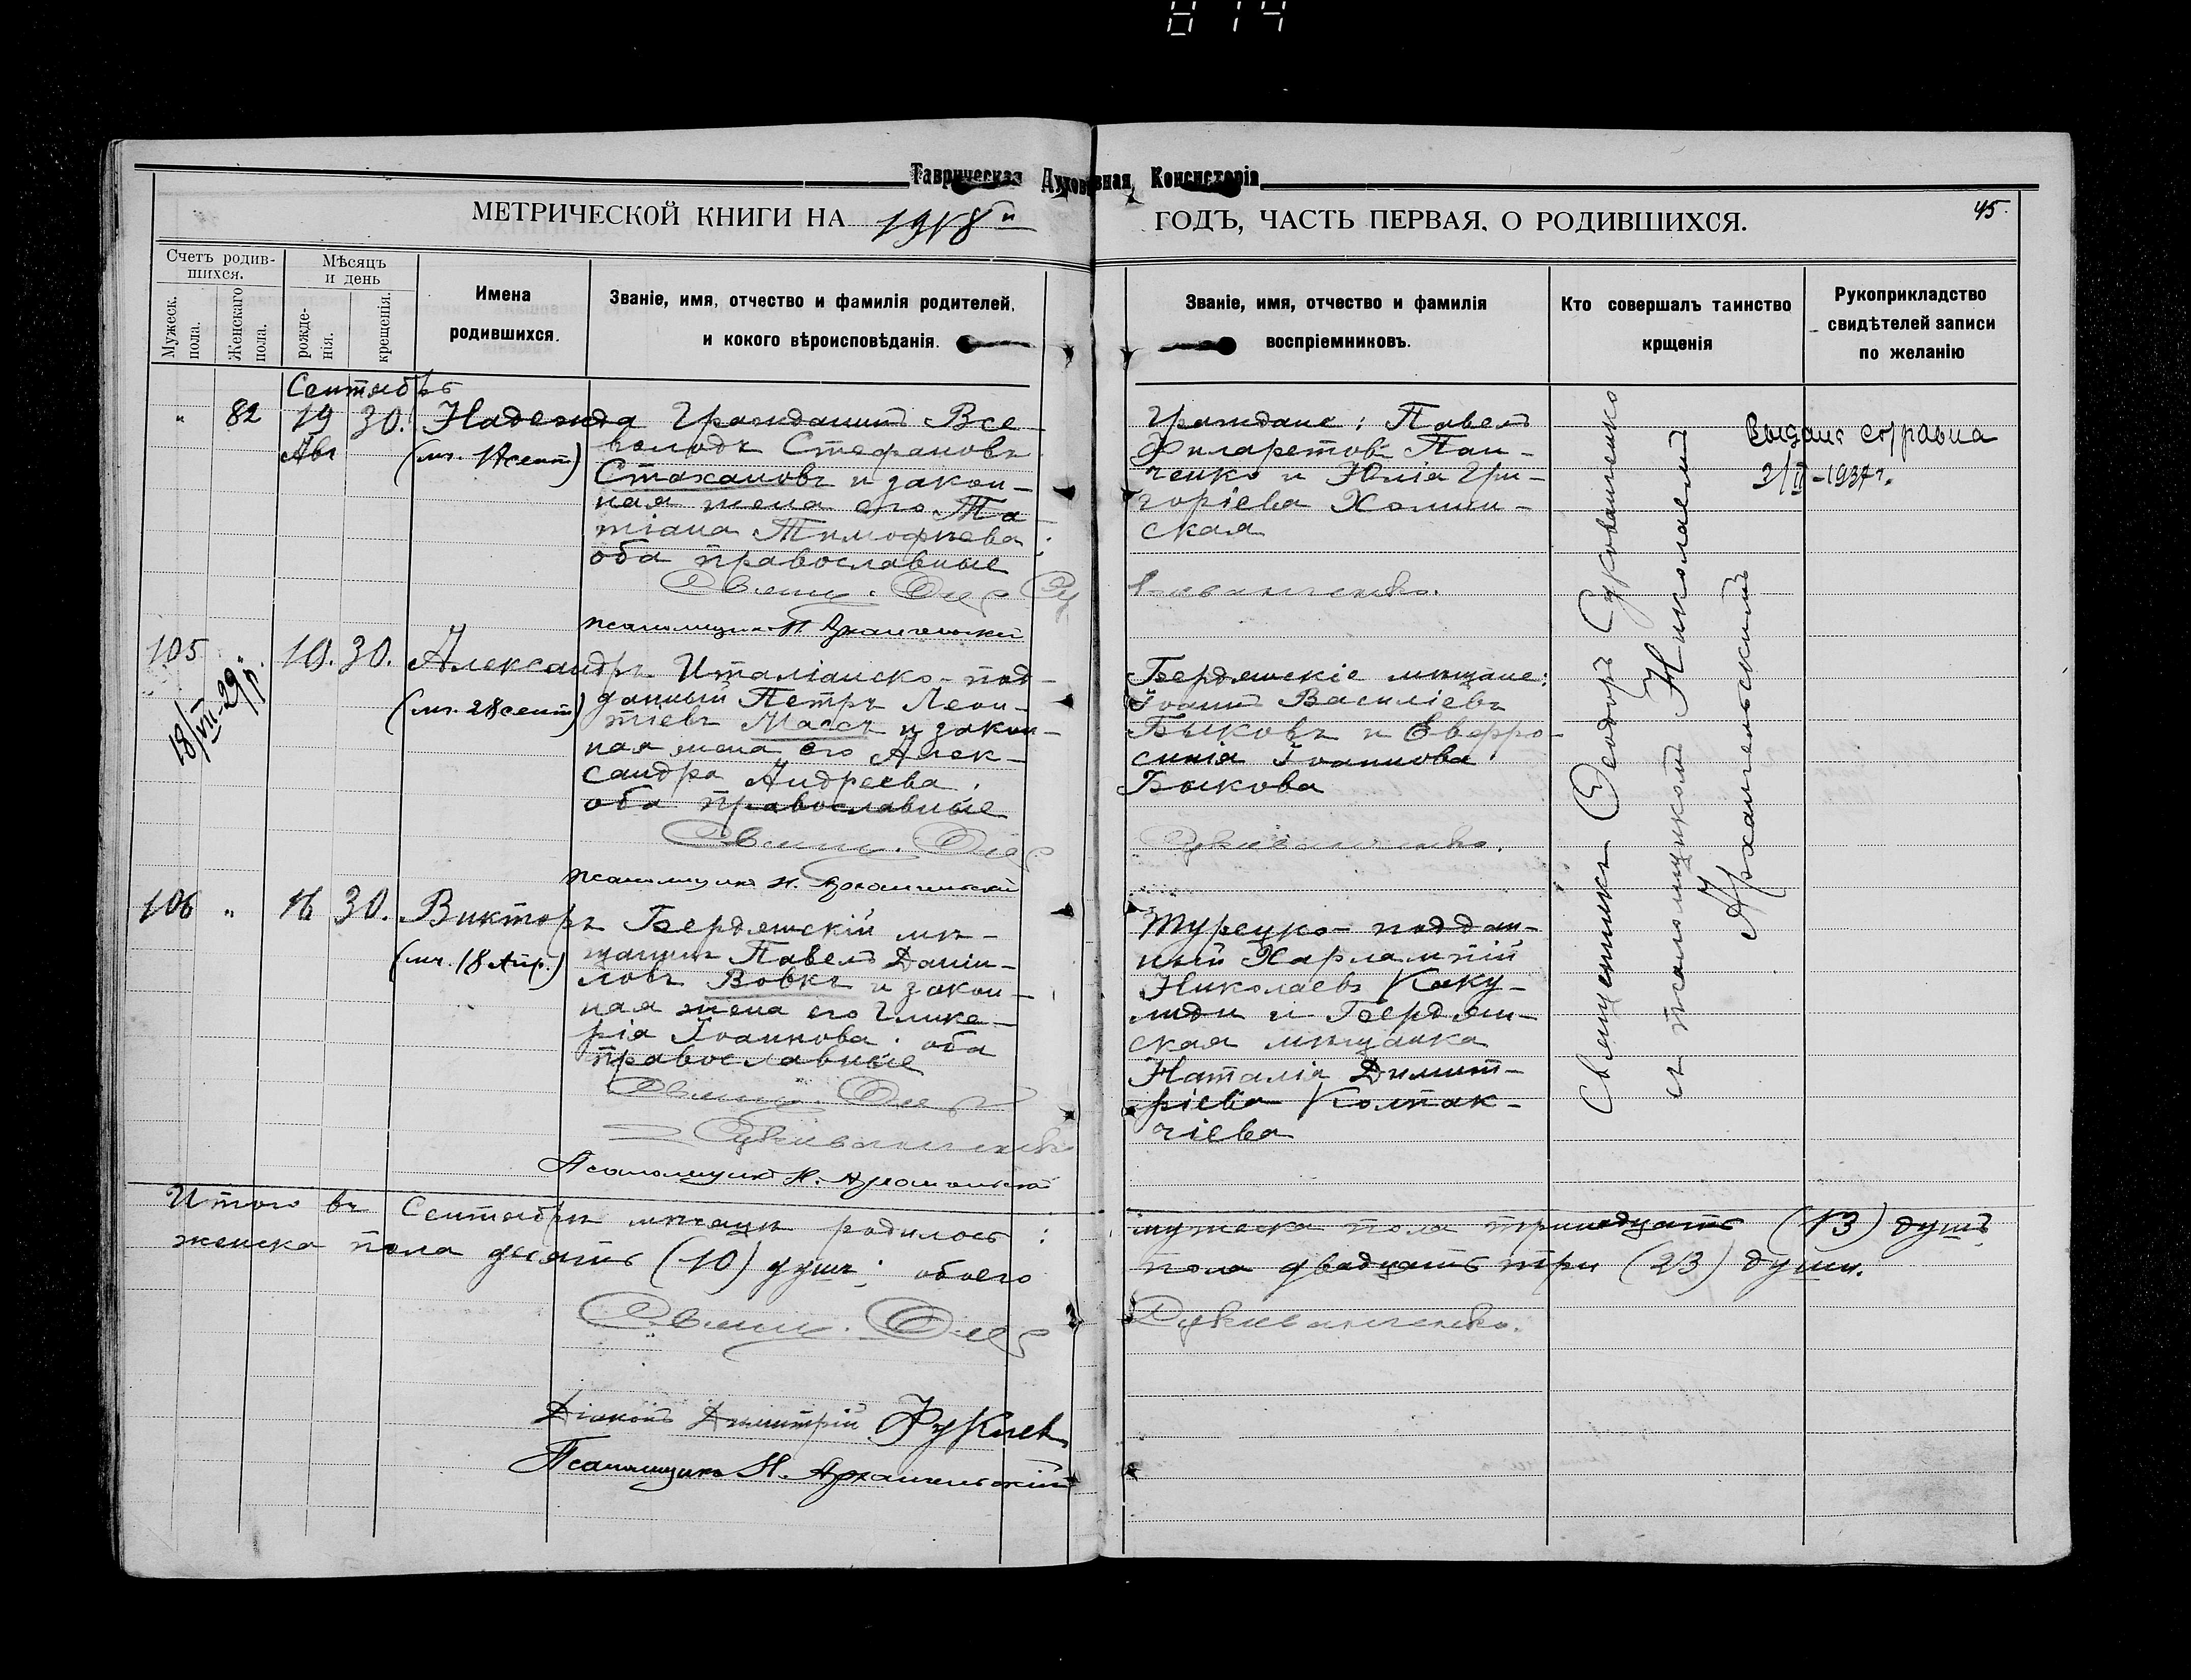 814
Таврическая Духовная Консисторія
МЕТРИЧЕСКОЙ КНИГИ НА 1918й ГОДЪ, ЧАСТЬ ПЕРВАЯ, О РОДИВШИХСЯ.
45.
Счетъ родив-
шихся.
Мужеск.
пола.
Женскаго
пола.
Мѣсяцъ
и день
рожде-
нія.
крещенія.
Имена
родившихся.
Званіе, имя, отчество и фамилія родителей,
и кокого вѣроисповѣданія.
Званіе, имя, отчество и фамилія
воспріемниковъ.
Кто совершалъ таинство
крщенія
Рукоприкладство
свидѣтелей записи
по желанію
Сентябрь
" 82 19 30. Надежда
Авг (м. 17 сент)
Гражданинъ Все-
володъ Стефановъ
Стахановъ и закон-
ная жена его Та-
тіана Тимофѣева;
оба православные
Свящ. Ѳеод. Сукованченко.
Псаломщикъ Н. Архангельскій
Граждане: Павелъ
Филаретовъ Пан-
ченко и Юлія Гри-
горіева Хомин-
ская
Выдана справка
2/II-1937г.
105 10. 30. Александръ
18/VIII-29 г.
(м. 28 сент)
Италіанско-под-
данный Петръ Леон-
тіевъ Массъ и закон-
ная жена его Алек-
сандра Андреева.
оба православные
Свящ. Ѳеод. Сукованченко.
Псаломщикъ Н. Архангельскій
Бердянскіе мѣщане:
Іоаннъ Василіевъ
Быковъ и Евфро-
синія Іоаннова
Быкова
106 " 16 30. Викторъ
(м. 18 Апр.)
Бердянскій мѣ-
щанинъ Павелъ Даніи-
ловъ Вовкъ и закон-
ная жена его Глике-
рія Іоаннова. оба
православные
Свящ. Ѳеод.
Сукованченко
Псаломщикъ Н. Архангельскій
Турецко-поддан-
ный Харлампій
Николаевъ Каку-
лиди и Бердян-
ская мѣщанка
Наталія Димит-
ріева Колпак-
чіева
Священникъ Ѳеодоръ Сукованченко
съ псаломщикомъ Николаемъ
Архангельскимъ
Итого въ Сентябрѣ мѣсяцѣ родилось: мужеска пола тринадцать (13) душъ
женска пола десять (10) душъ; обоего пола двадцать три (23) души.
Свящ. Ѳеод. Сукованченко.
Діаконъ Димитрій
Псаломщикъ Н. Архангельскій